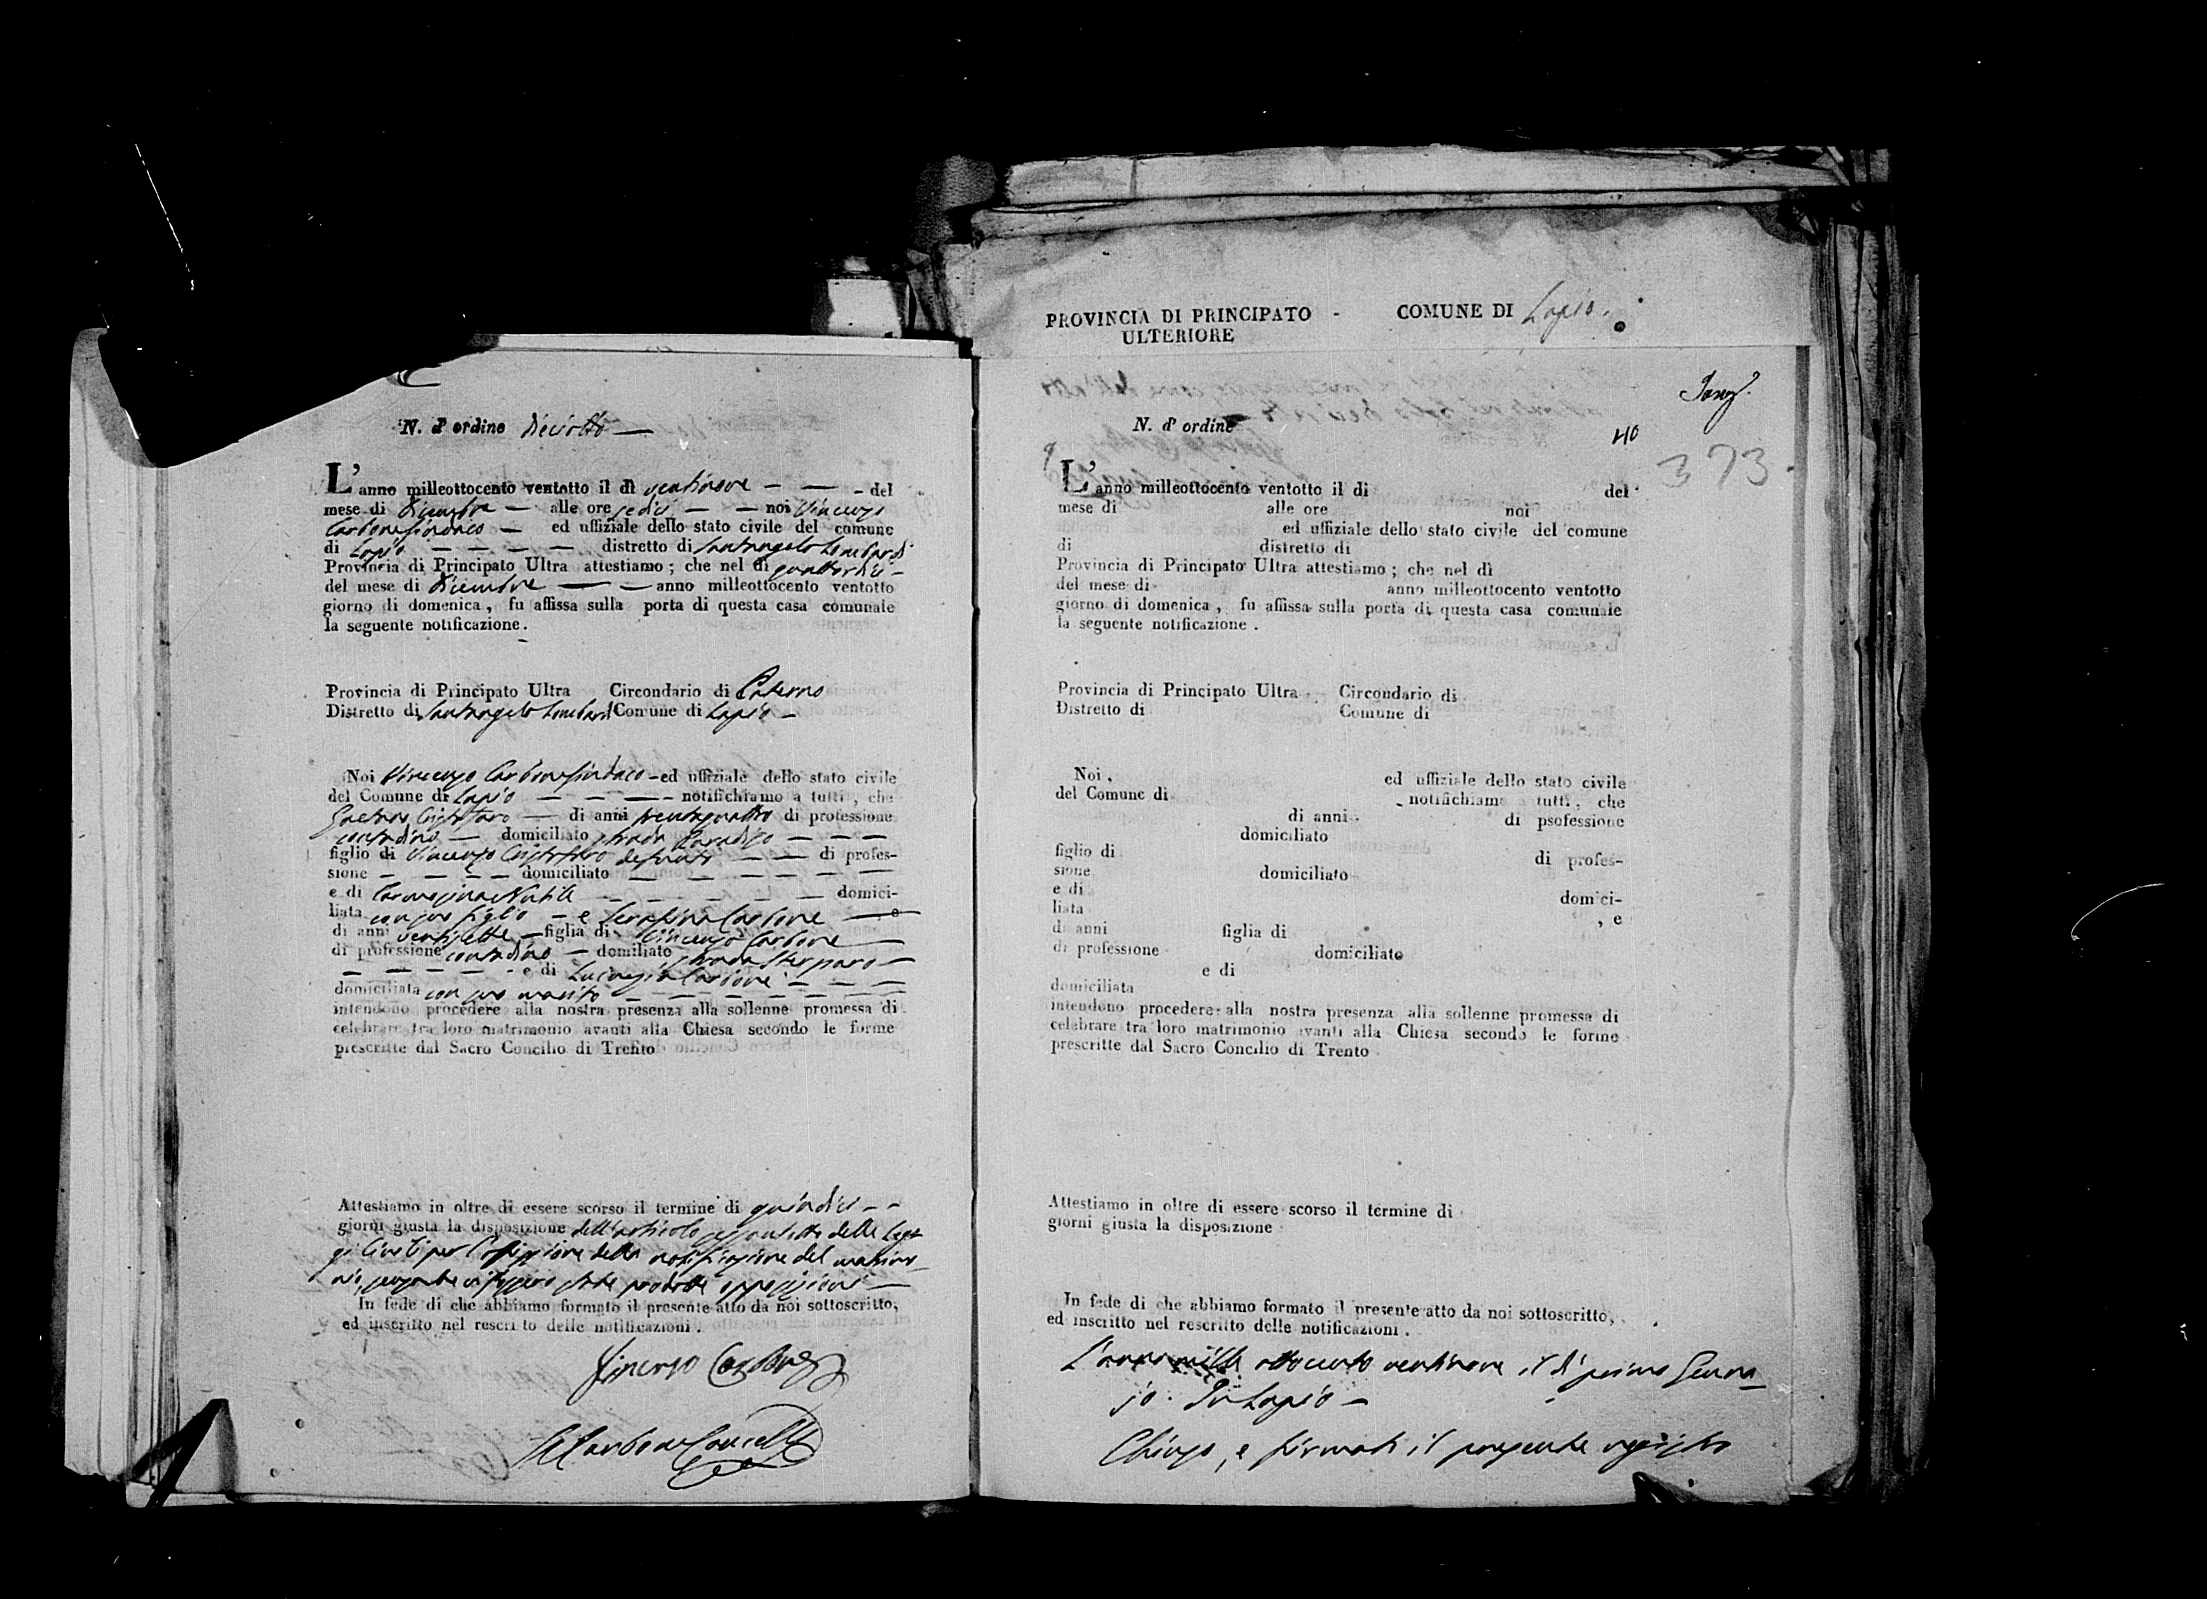 N. d' ordine Deciotto
L'anno milleottocento ventotto il dì ventinove del
mese di Dicembre alle ore sedici noi Vincenzo
Carbone Sindaco ed uffiziale dello stato civile del comune
di Lapio distretto di Santangelo Lombardi
Provincia di Principato Ultra attestiamo ; che nel dì quattordici
del mese di Dicembre anno milleottocento ventotto
giorno di domenica , fu affissa sulla porta di questa casa comunale
la seguente notificazione .
Provincia di Principato Ultra Circondario di Paterno
Distretto di Santangelo Lombardi Comune di Lapio
Noi Vincenzo Carbone Sindaco ed uffiziale dello stato civile
del Comune di Lapio notifichiamo a tutti , che
Gaetano Cristofaro di anni trentaquattro di professione
contadino domiciliato strada Paradiso
figlio di Vincenzo Cristofaro defunto di profes-
sione domiciliato
e di Carmosina Nutile domici-
liata con suo figlio e Serafina Carbone e
di anni ventisette figlia di Vincenzo Carbone
di professione contadino domiliato strada Sterparo
e di Lucrezia Carbone
domiciliata con suo marito
intendono procedere alla nostra presenza alla sollenne promessa di
celebrare tra loro matrimonio avanti alla Chiesa secondo le forme
prescritte dal Sacro Concilio di Trento
Attestiamo in oltre di essere scorso il termine di quindici
giorni giusta la disposizione dell'articolo sessantotto delle Leg-
gi Civili per l'affissione della notificazione del matrimo-
nio, senza che vi fossero state prodotte opposizioni
In fede di che abbiamo formato il presente atto da noi sottoscritto,
ed inscritto nel rescritto delle notificazioni .
Vincenzo Carbone
Carbone Cancelle
PROVINCIA DI PRINCIPATO - COMUNE DI Lapio.
ULTERIORE
N. d' ordine
40
373
L'anno milleottocento ventotto il di del
mese di alle ore noi
ed uffiziale dello stato civile del comune
di distretto di
Provincia di Principato Ultra attestiamo ; che nel dì
del mese di anno milleottocento ventotto
giorno di domenica , fu affissa sulla porta di questa casa comunale
la seguente notificazione .
Provincia di Principato Ultra Circondario di
Distretto di Comune di
Noi , ed uffiziale dello stato civile
del Comune di notifichiamo a tutti , che
di anni di psofessione
domiciliato
figlio di di profes-
sione domiciliato
e di domici-
liata , e
di anni figlia di
di professione domiciliato
e di
domiciliata
intendono procedere alla nostra presenza alla sollenne promessa di
celebrare tra loro matrimonio avanti alla Chiesa secondo le forme
prescritte dal Sacro Concilio di Trento
Attestiamo in oltre di essere scorso il termine di
giorni giusta la disposizione
In fede di che abbiamo formato il presente atto da noi sottoscritto,
ed inscritto nel rescritto delle notificazioni .
L'anno mille ottocento ventinove il dì primo Genna-
jo. In Lapio
Chiuso, e firmato il presente registro